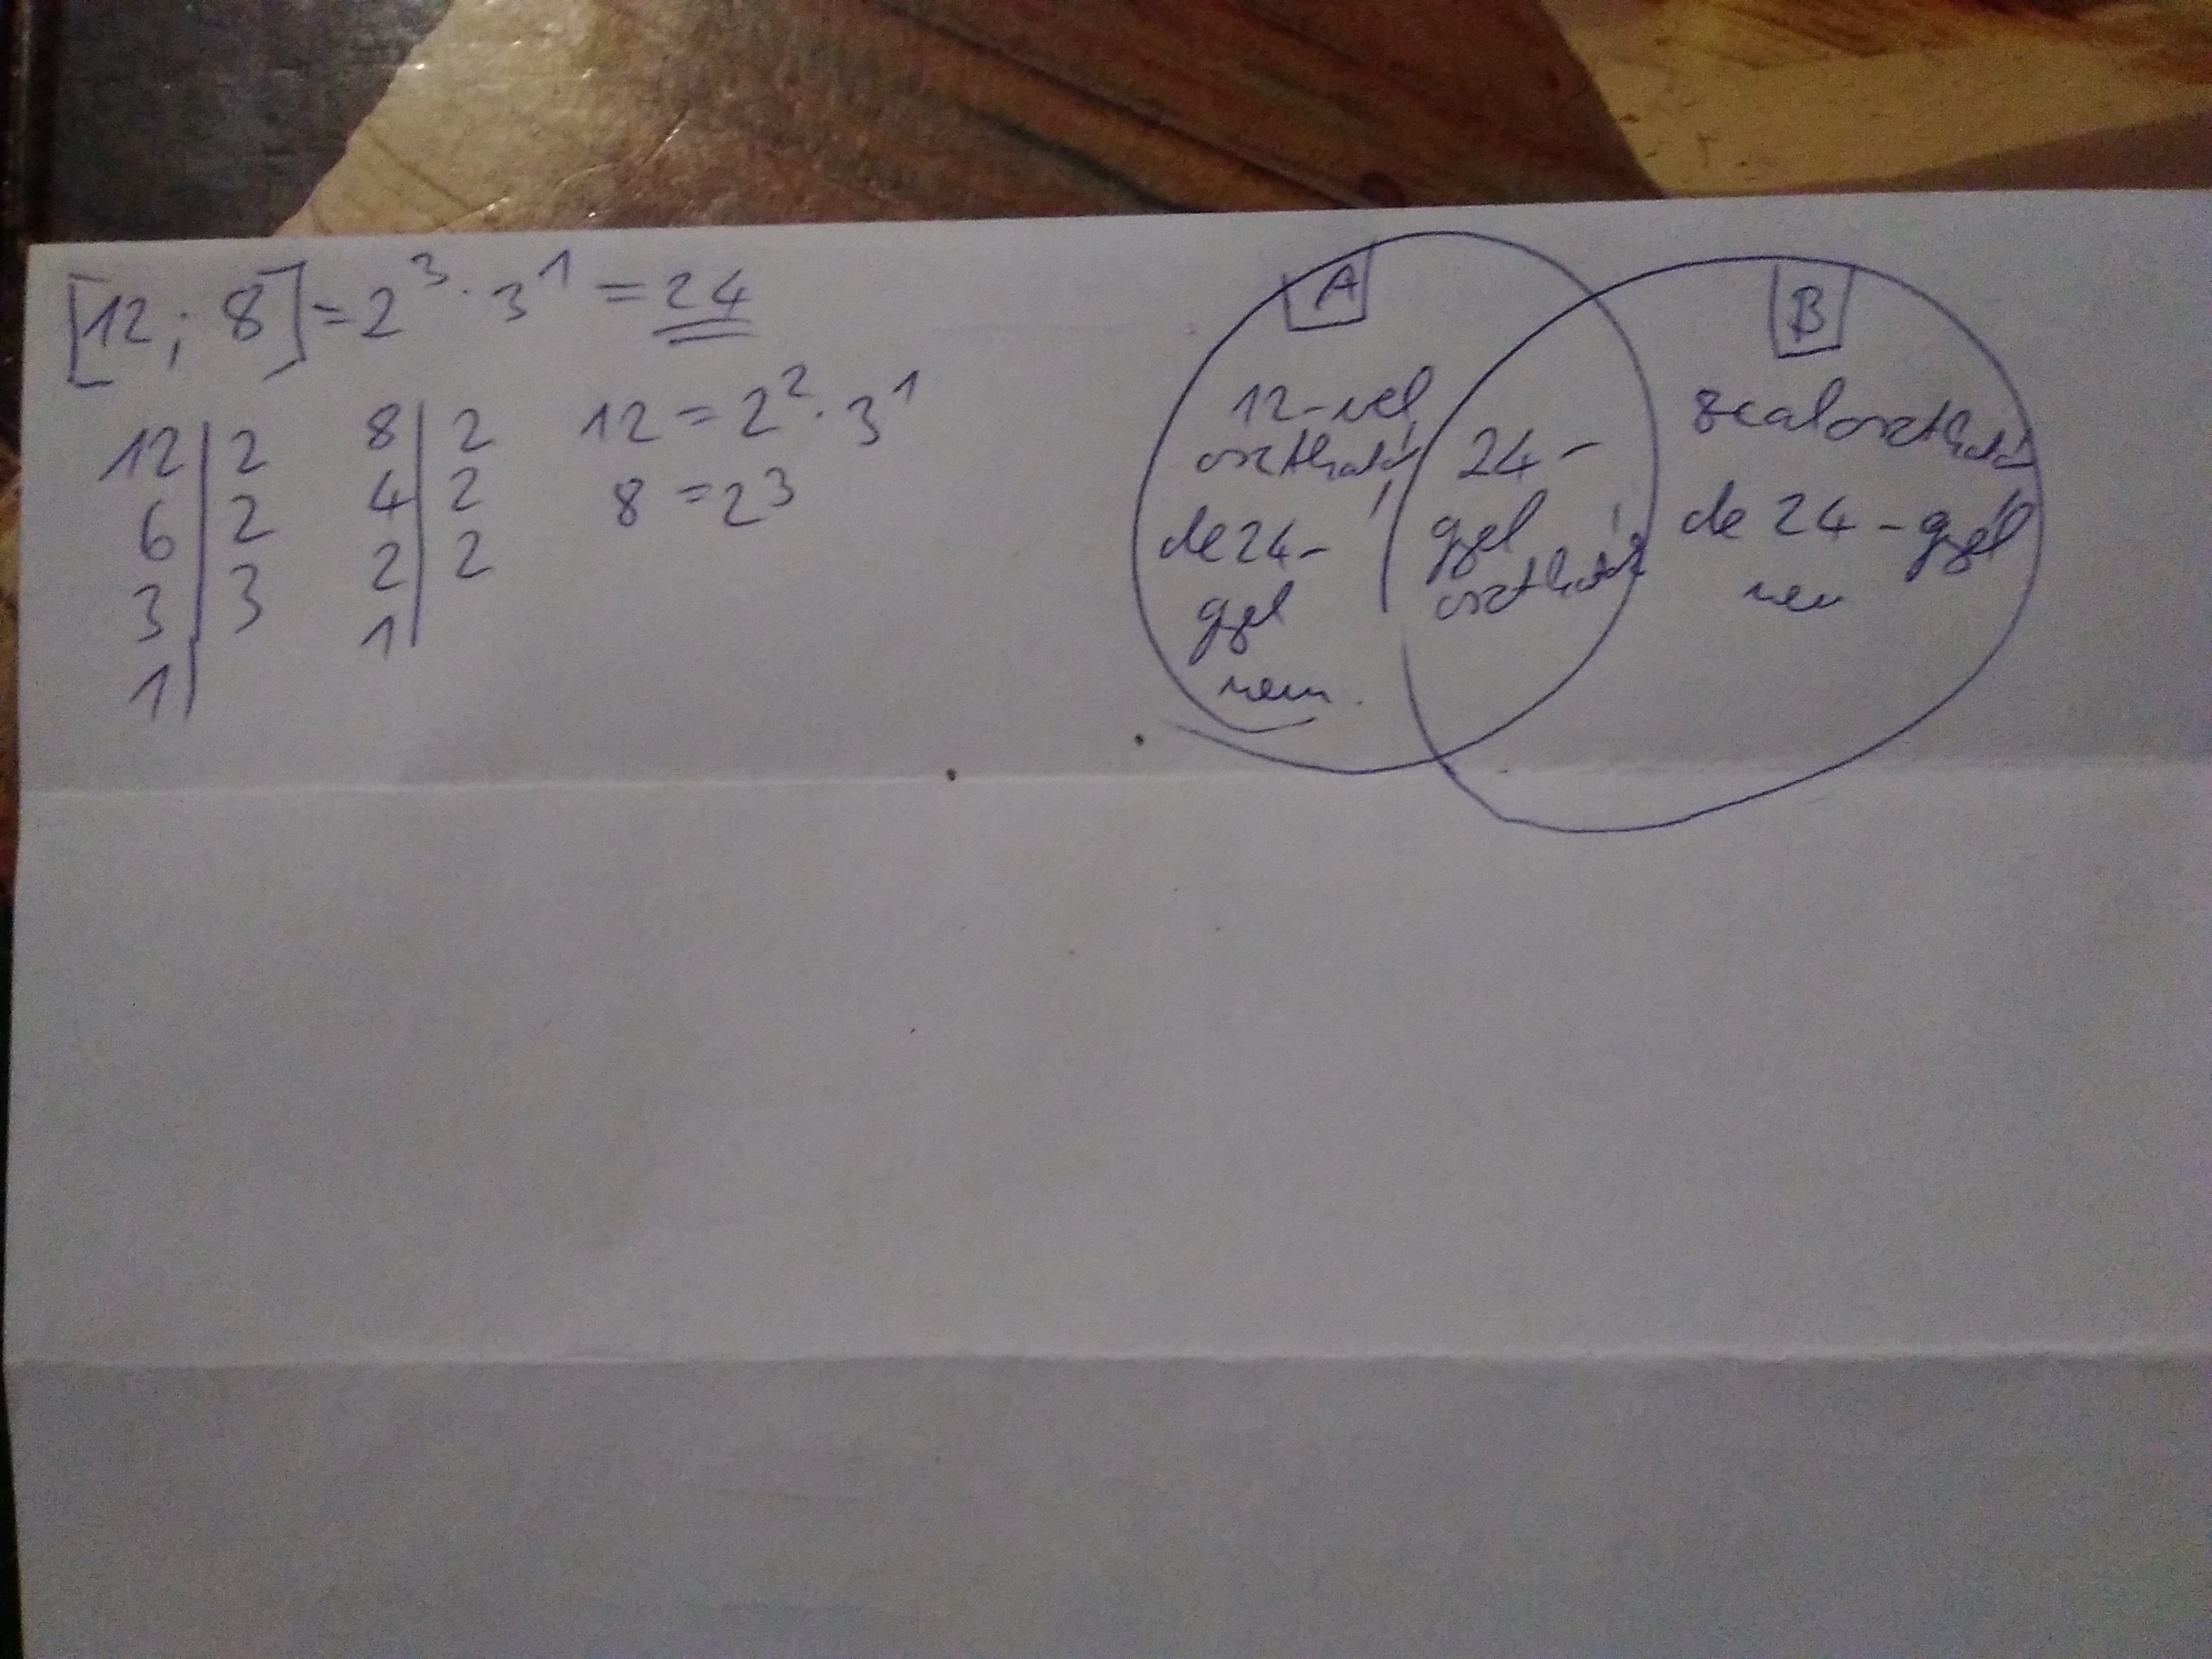 [12; 8] = 2³ · 3¹ = 24
12 | 2
6 | 2
3 | 3
1 |
8 | 2
4 | 2
2 | 2
1 |
12 = 2² · 3¹
8 = 2³
A
12-vel
osztható,
de 24-
gyel
nem.
24-
gyel
osztható
B
8cal osztható
de 24-gyel
nem